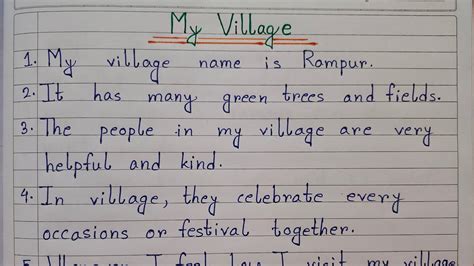 My Village
1. My village name is Rampur.
2. It has many green trees and fields.
3. The people in my village are very
helpful and kind.
4. In village, they celebrate every
occasions or festival together.
I feel I visit my village